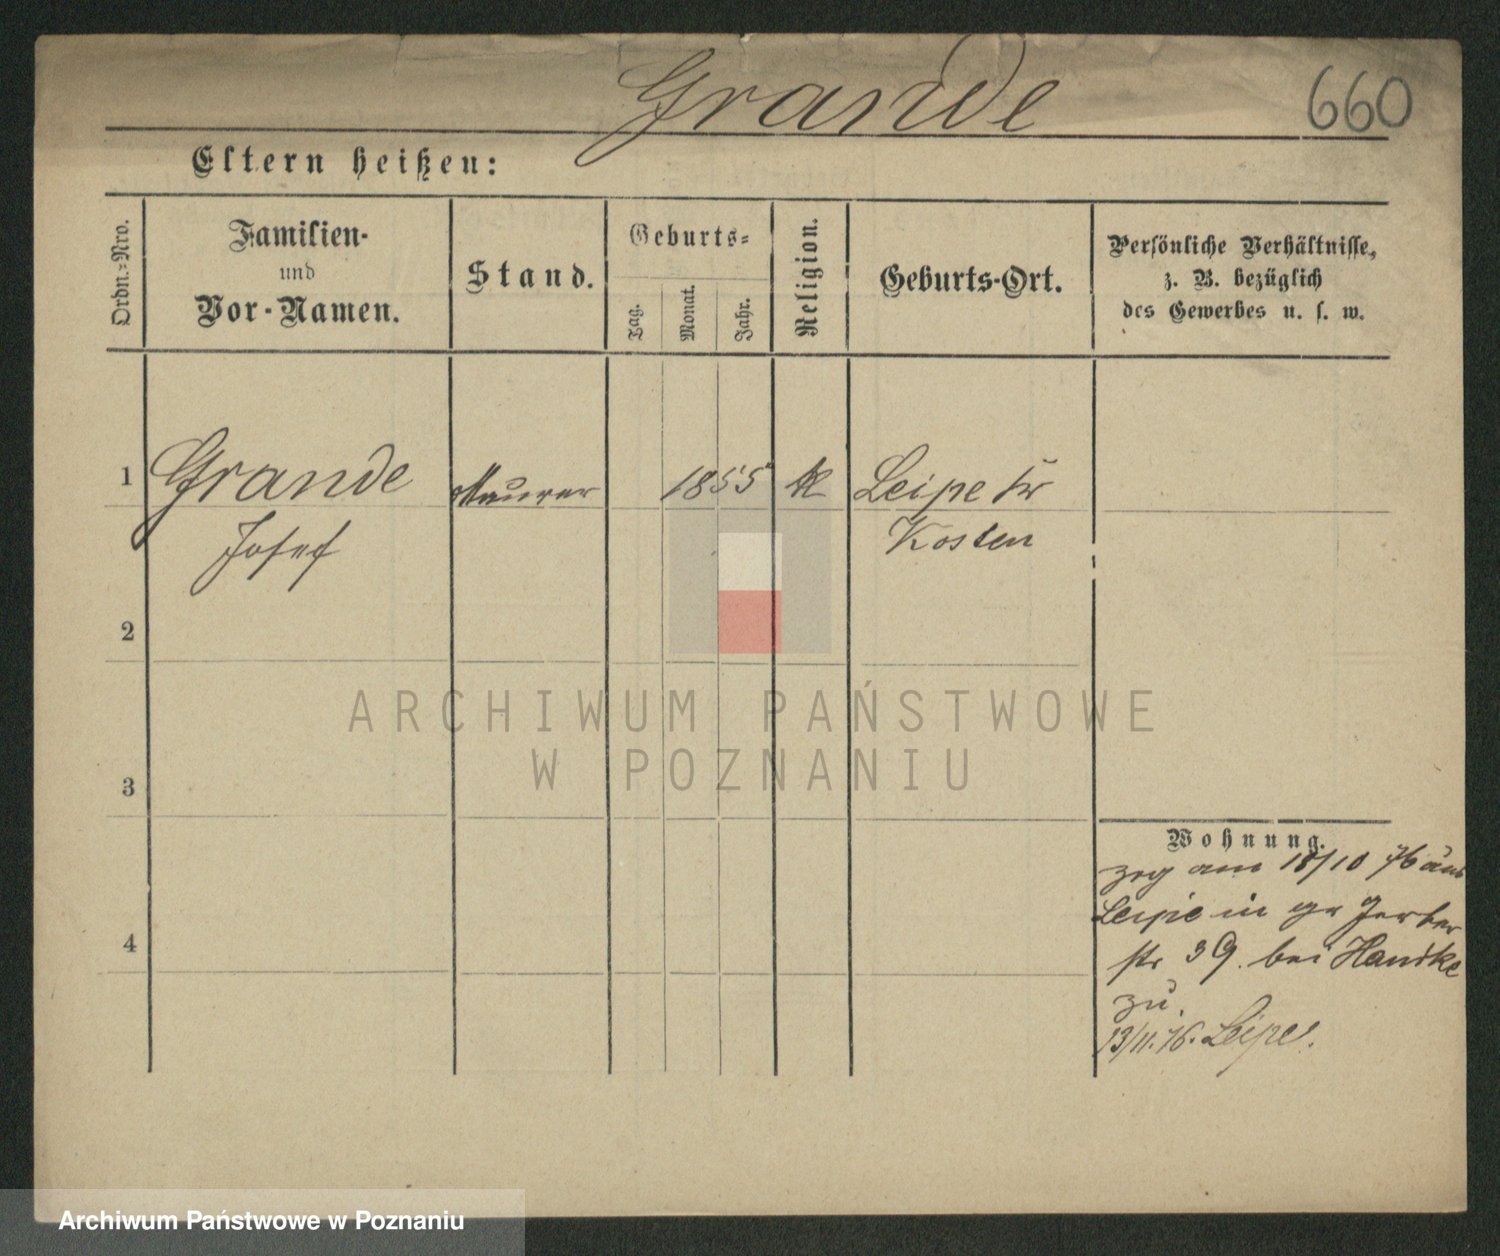 Grande 660
Eltern heißen:
Ordn.=Nro.
Familien-
und
Vor-Namen.
Stand.
Geburts=
Tag.
Monat.
Jahr.
Religion.
Geburts-Ort.
Persönliche Verhältnisse,
z. B. bezüglich
des Gewerbes u. s. w.
1 Grande Maurer 1855 k Leipe Kr
Josef Kosten
2
3
4
Wohnung.
zog am 18/10 76 aus
Leipe in gr Gerber
str 39. bei Handke
zu.
13/11.76. Leipe.
ARCHIWUM PAŃSTWOWE
W POZNANIU
Archiwum Państwowe w Poznaniu